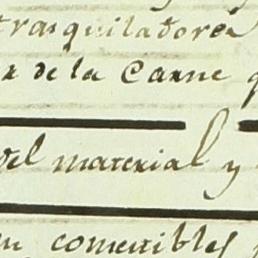 trasquiladores
de la Carne q
del material y
en comestibles